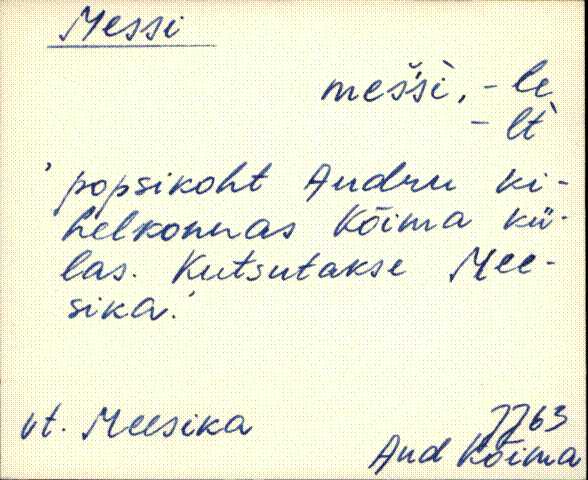 Messi
meš̀šì, - le
- lt̀
' popsikoht Audru ki-
helkonnas Kõima kü-
las. Kutsutakse Mee-
sika.'
vt. Meesika
JJ63
Aud Kõima